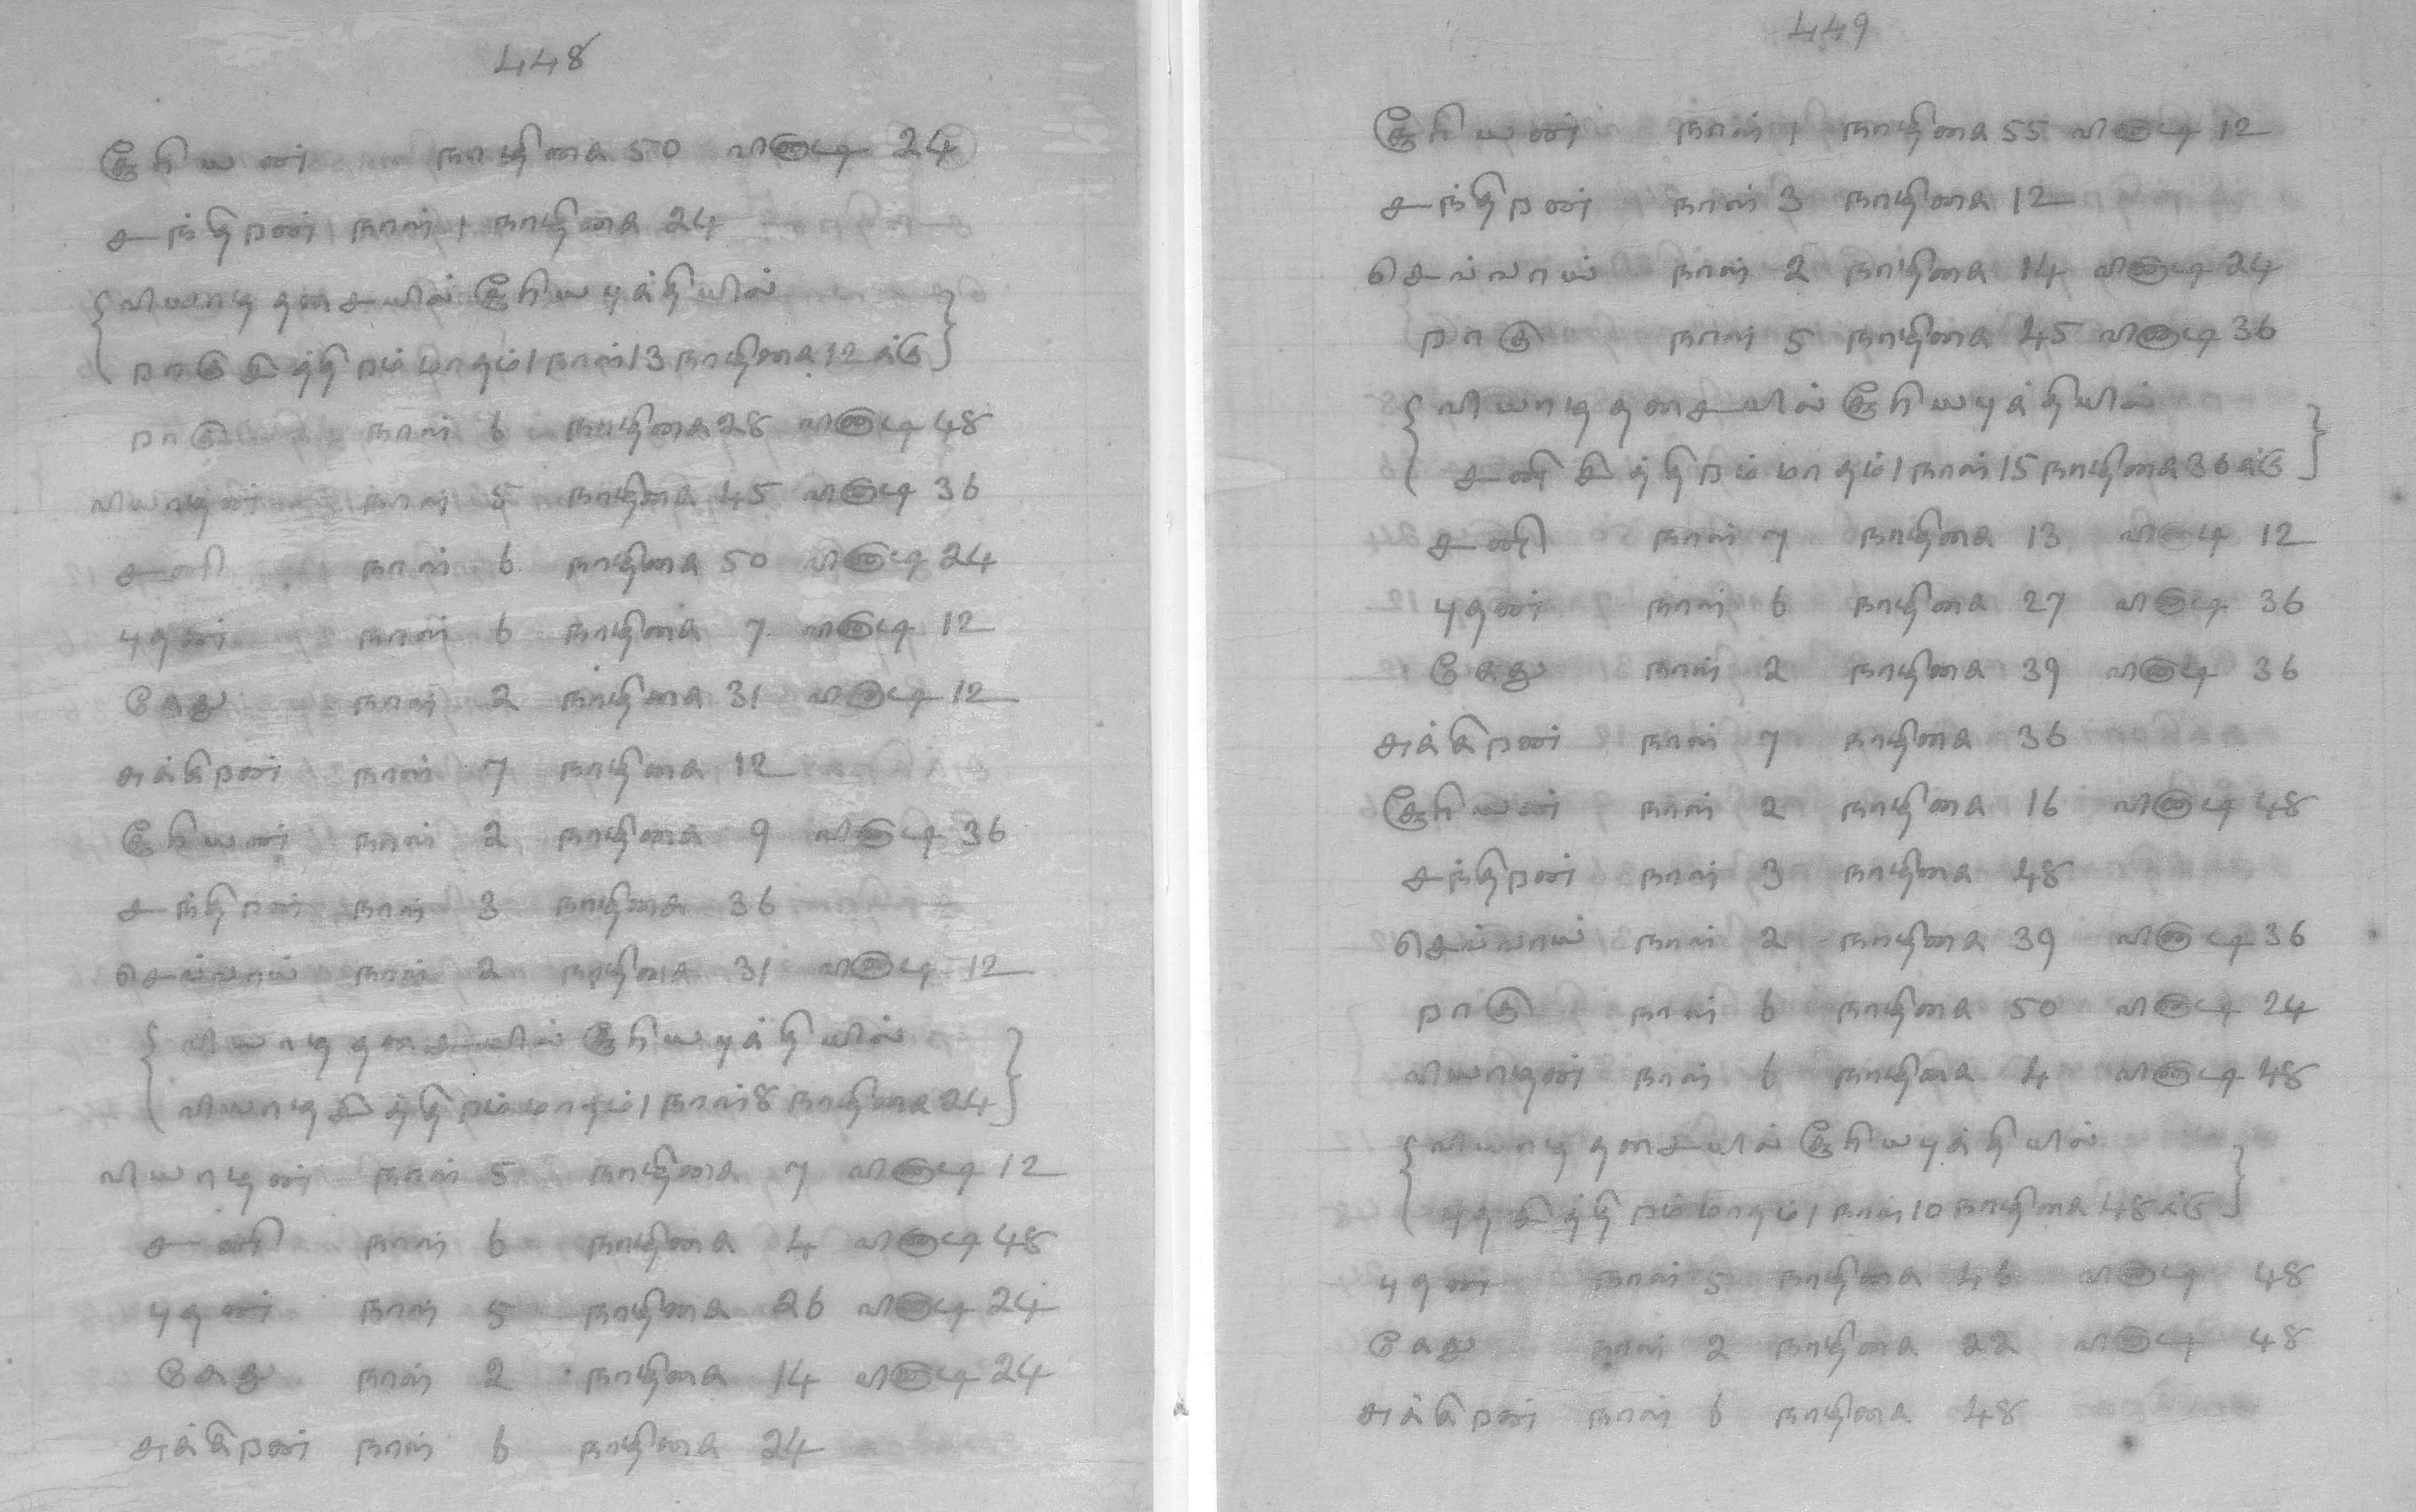 448
சூரியன் நாழிகை 50 வினாடி 24
சந்திரன் நாள் 1 நாழிகை 24
{ வியாழ தசையில் சூரிய புக்தியில்
ராகு சித்திரம் மாதம் 1 நாள் 13 நாழிகை 12 க்கு }
ராகு நாள் 6 நாழிகை 28 வினாடி 48
வியாழன் நாள் 5 நாழிகை 45 வினாடி 36
சனி நாள் 6 நாழிகை 50 வினாடி 24
புதன் நாள் 6 நாழிகை 7 வினாடி 12
கேது நாள் 2 நாழிகை 31 வினாடி 12
சுக்கிரன் நாள் 7 நாழிகை 12
சூரியன் நாள் 2 நாழிகை 9 வினாடி 36
சந்திரன் நாள் 3 நாழிகை 36
செவ்வாய் நாள் 2 நாழிகை 31 வினாடி 12
{ வியாழ தசையில் சூரிய புக்தியில்
வியாழ சித்திரம் மாதம் 1 நாள் 8 நாழிகை 24 }
வியாழன் நாள் 5 நாழிகை 7 வினாடி 12
சனி நாள் 6 நாழிகை 4 வினாடி 48
புதன் நாள் 5 நாழிகை 26 வினாடி 24
கேது நாள் 2 நாழிகை 14 வினாடி 24
சுக்கிரன் நாள் 6 நாழிகை 24
449
சூரியன் நாள் 1 நாழிகை 55 வினாடி 12
சந்திரன் நாள் 3 நாழிகை 12
செவ்வாய் நாள் 2 நாழிகை 14 வினாடி 24
ராகு நாள் 5 நாழிகை 45 வினாடி 36
{ வியாழ தசையில் சூரிய புக்தியில்
சனி சித்திரம் மாதம் 1 நாள் 15 நாழிகை 36 க்கு }
சனி நாள் 7 நாழிகை 13 வினாடி 12
புதன் நாள் 6 நாழிகை 27 வினாடி 36
கேது நாள் 2 நாழிகை 39 வினாடி 36
சுக்கிரன் நாள் 7 நாழிகை 36
சூரியன் நாள் 2 நாழிகை 16 வினாடி 48
சந்திரன் நாள் 3 நாழிகை 48
செவ்வாய் நாள் 2 நாழிகை 39 வினாடி 36
ராகு நாள் 6 நாழிகை 50 வினாடி 24
வியாழன் நாள் 6 நாழிகை 4 வினாடி 48
{ வியாழ தசையில் சூரிய புக்தியில்
புத சித்திரம் மாதம் 1 நாள் 10 நாழிகை 48 க்கு }
புதன் நாள் 5 நாழிகை 46 வினாடி 48
கேது நாள் 2 நாழிகை 22 வினாடி 48
சுக்கிரன் நாள் 6 நாழிகை 48